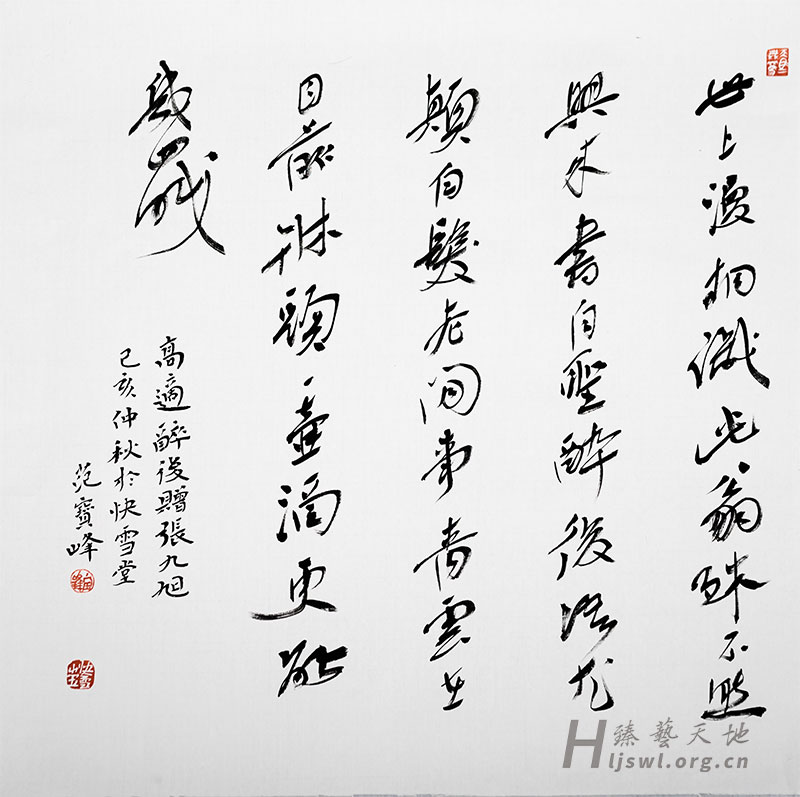 世上漫相識此翁殊不然
興来書自聖醉後語尤
顛白髮老閒事青雲在
目前牀頭一壺酒更能
高適醉後贈張九旭
己亥仲秋於快雪堂
范寶峰
臻藝天地
Hljswl.org.cn